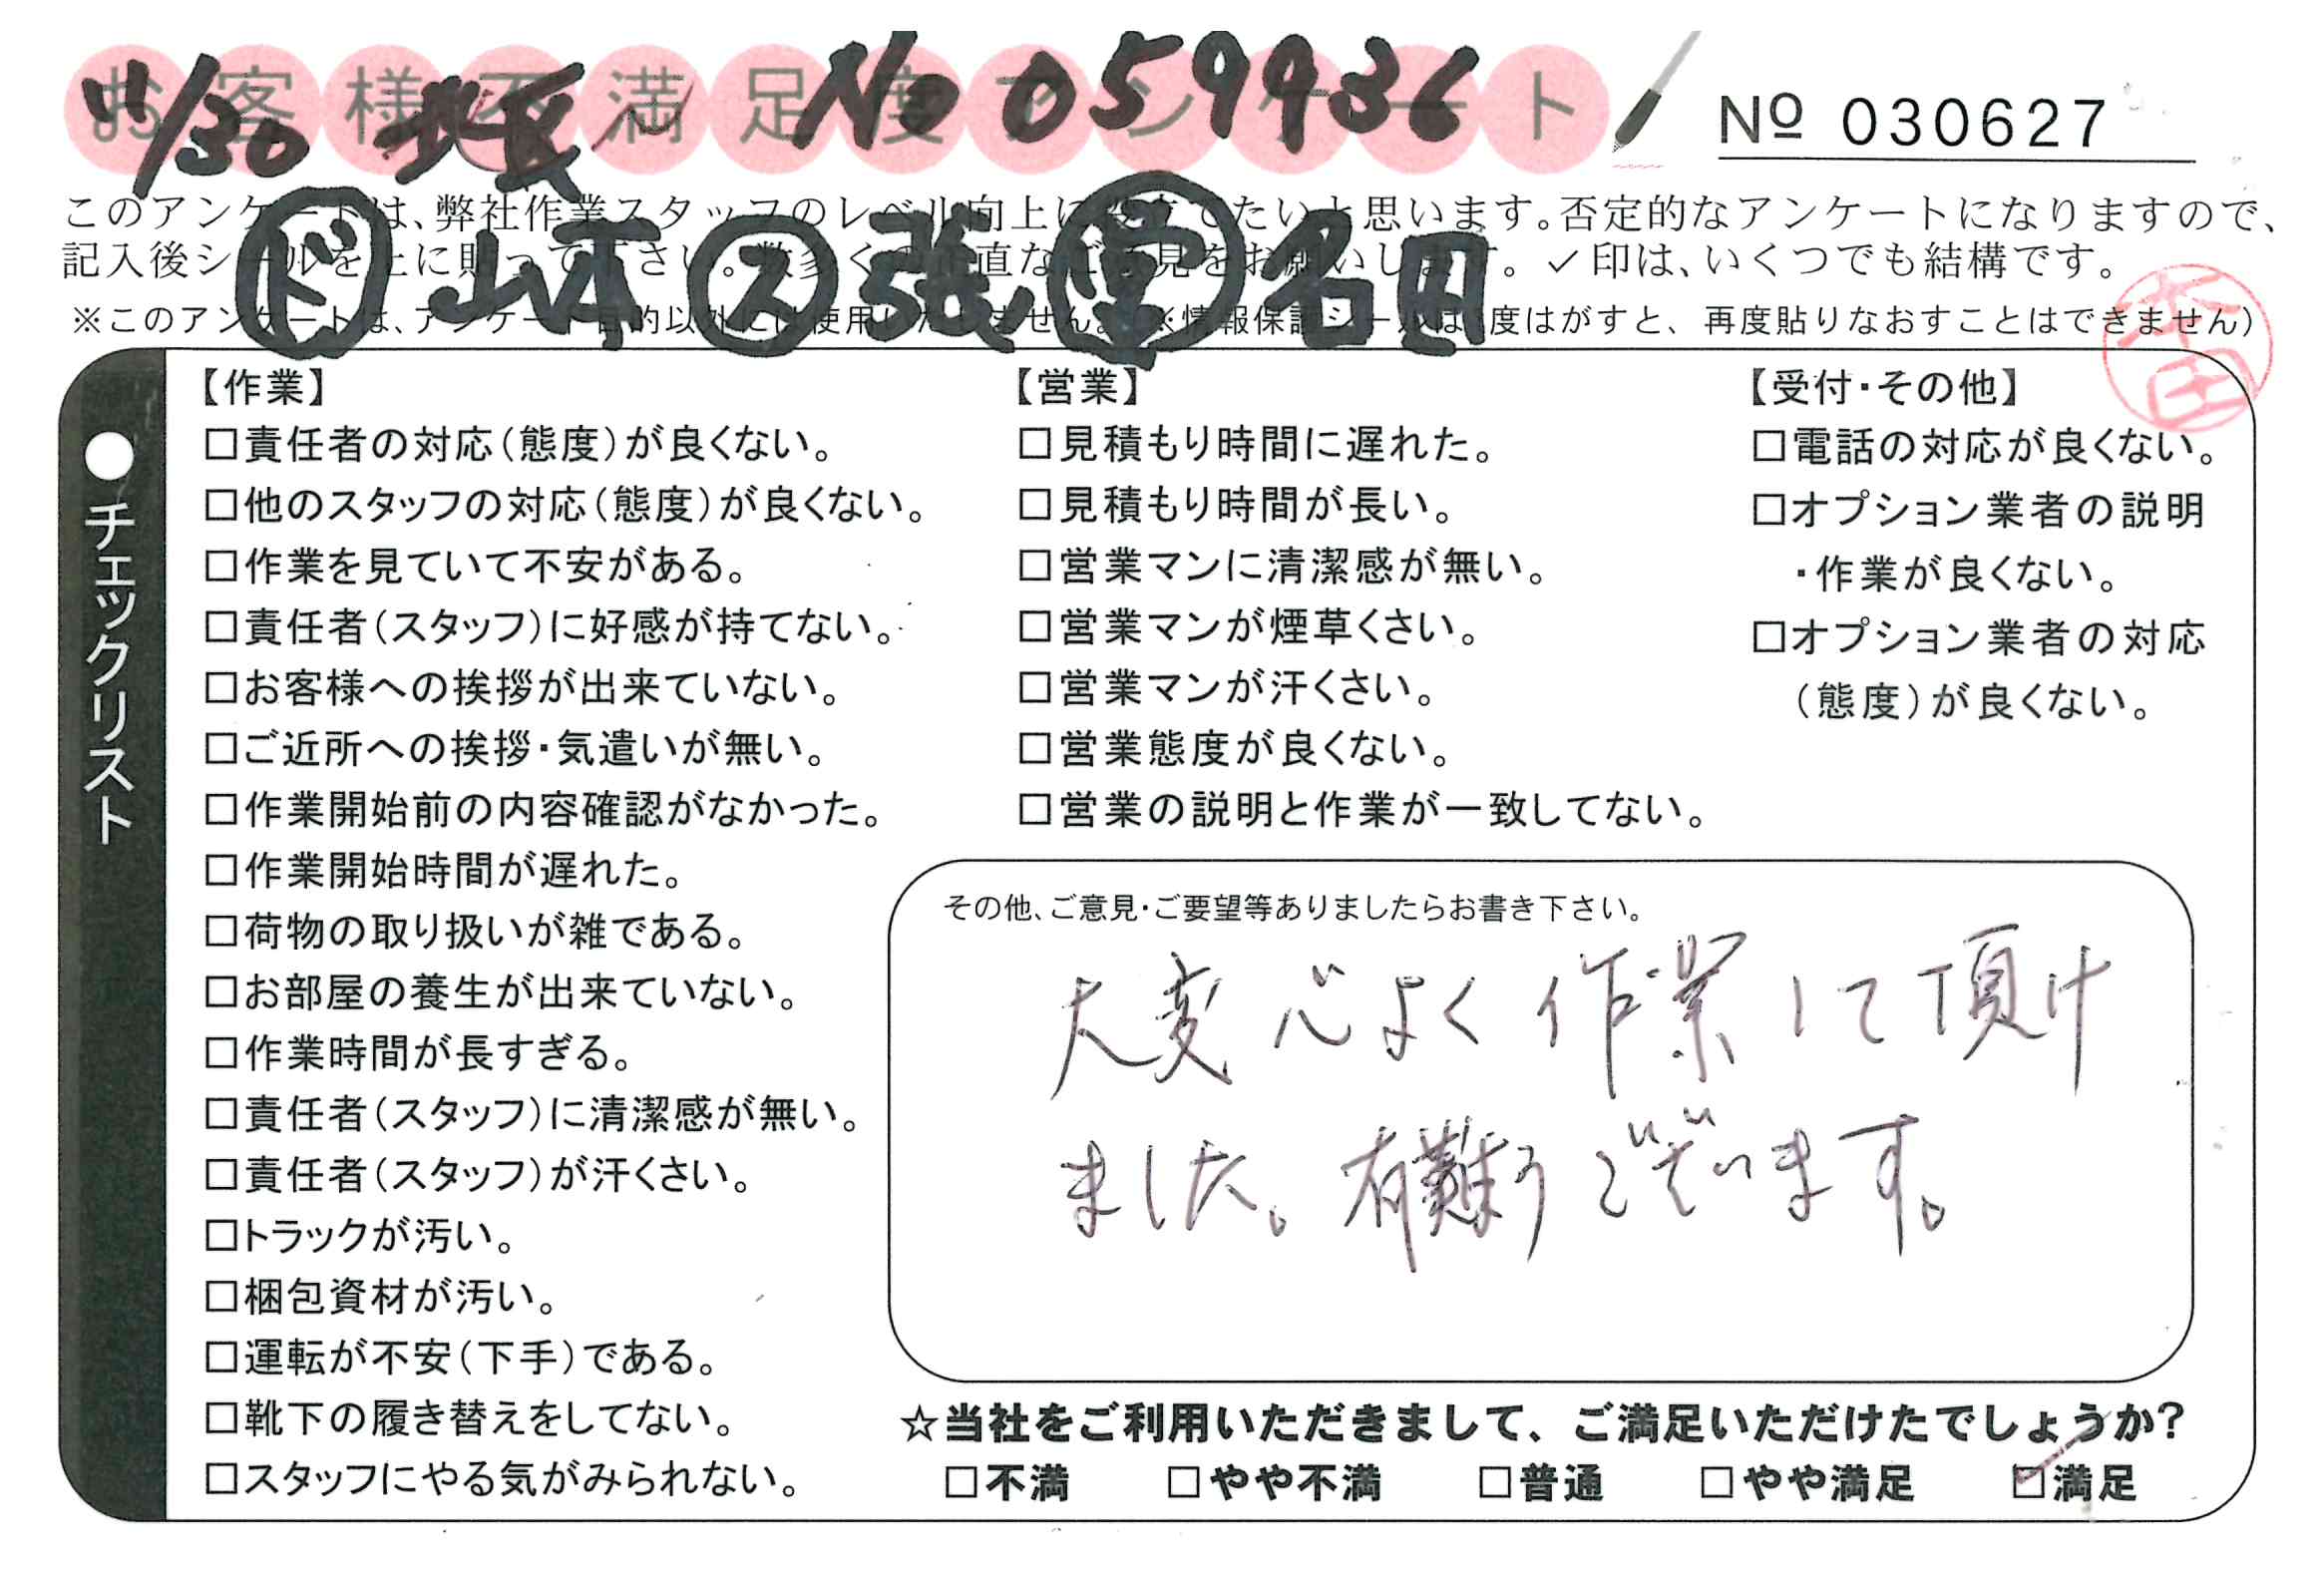 お客様不満足度アンケート
11/30 No 059936
№ 030627
このアンケートは、弊社作業スタッフのレベル向上に役立てたいと思います。否定的なアンケートになりますので、
記入後シールを上に貼って下さい。数多くの正直なご意見をお願いします。✓印は、いくつでも結構です。
㋣ 山本 ㋜ 張 営 名田
※このアンケートは、アンケート目的以外には使用いたしません。(※情報保護シールは1度はがすと、再度貼りなおすことはできません)
●チェックリスト
【作業】
□責任者の対応(態度)が良くない。
□他のスタッフの対応(態度)が良くない。
□作業を見ていて不安がある。
□責任者(スタッフ)に好感が持てない。
□お客様への挨拶が出来ていない。
□ご近所への挨拶・気遣いが無い。
□作業開始前の内容確認がなかった。
□作業開始時間が遅れた。
□荷物の取り扱いが雑である。
□お部屋の養生が出来ていない。
□作業時間が長すぎる。
□責任者(スタッフ)に清潔感が無い。
□責任者(スタッフ)が汗くさい。
□トラックが汚い。
□梱包資材が汚い。
□運転が不安(下手)である。
□靴下の履き替えをしてない。
□スタッフにやる気がみられない。
【営業】
□見積もり時間に遅れた。
□見積もり時間が長い。
□営業マンに清潔感が無い。
□営業マンが煙草くさい。
□営業マンが汗くさい。
□営業態度が良くない。
□営業の説明と作業が一致してない。
【受付・その他】
□電話の対応が良くない。
□オプション業者の説明
・作業が良くない。
□オプション業者の対応
(態度)が良くない。
その他、ご意見・ご要望等ありましたらお書き下さい。
大変心よく作業して頂け
ました。有難うございます。
☆当社をご利用いただきまして、ご満足いただけたでしょうか?
□不満 □やや不満 □普通 □やや満足 ☑満足